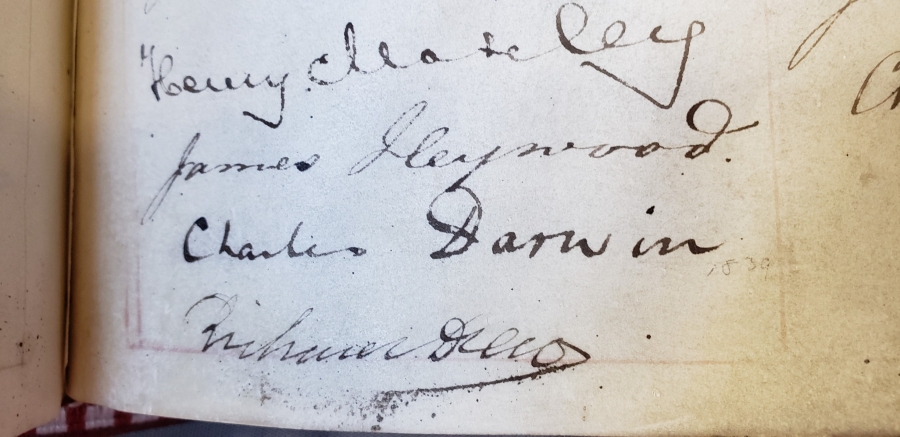 Henry Moseley
James Heywood.
Charles Darwin
1839
Richard Drew